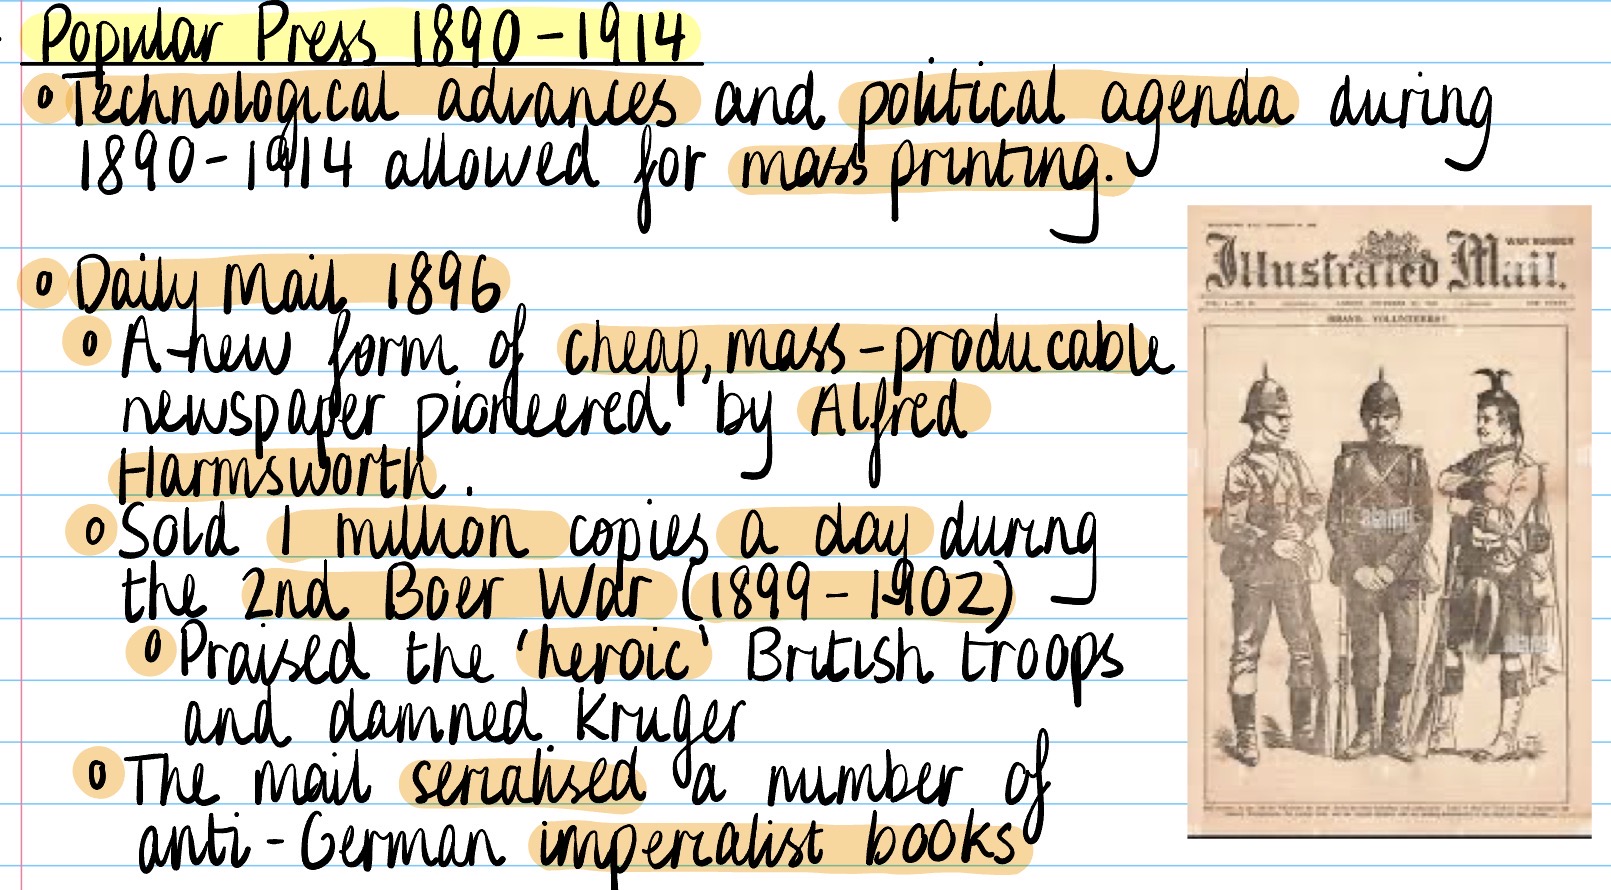 Popular Press 1890-1914
Technological advances and political agenda during
1890-1914 allowed for mass printing.
Daily Mail 1896
A new form of cheap, mass-producable
newspaper pioneered by Alfred
Harmsworth.
Sold 1 million copies a day during
the 2nd Boer War (1899-1902)
Praised the 'heroic' British troops
and damned Kruger
The mail serialised a number of
anti-German imperialist books
WAR NUMBER
Illustrated Mail.
BRAVE VOLUNTEERS!
alamy
alamy